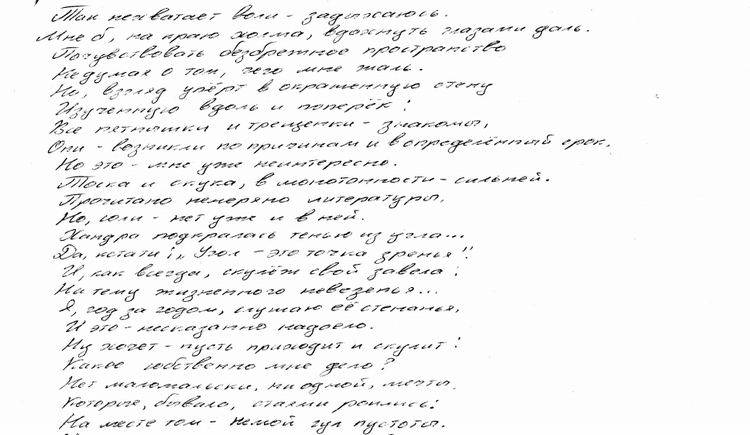 Так не хватает воли - задыхаюсь.
Мне б, на краю холма, вдохнуть глазами даль.
Почувствовать безбрежное пространство
Не думая о том, чего мне жаль.
Но, взгляд упёрт в окрашенную стену
Изученную вдоль и поперёк!
Все пятнышки и трещинки - знакомы,
Они - возникли по причинам и в определённый срок.
Но это - мне уже неинтересно.
Тоска и скука, в монотонности - сильней.
Прочитано немеряно литературы,
Но, соли - нет уже и в ней.
Хандра подкралась тенью из угла...
Да, кстати: "Угол - это точка зренья"!
И, как всегда, скулёж свой завела:
На тему жизненного невезенья...
Я, год за годом, слушаю её стенанья,
И это - несказанно надоело.
Ну хочет - пусть приходит и скулит!
Какое собственно мне дело?
Нет маломальски, ни одной, мечты,
Которые, бывало, стаями роились!
На месте том - немой гул пустоты.